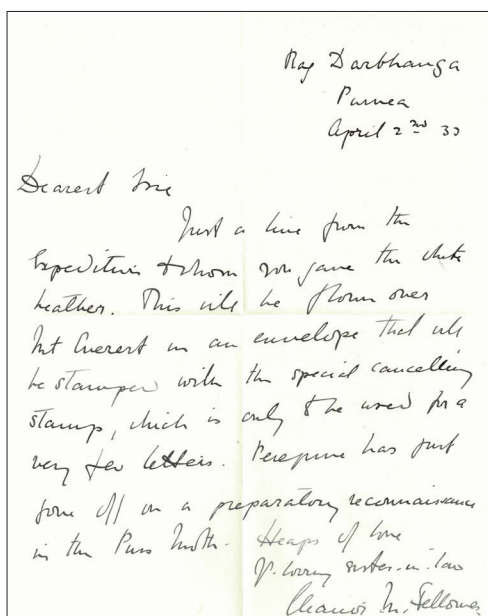 Raj Darbhanga
Purnea
April 2nd 33
Dearest
Just a line from the
Expedition to whom you gave the white
heather. This will be flown over
Mt Everest in an envelope that will
be stamped with the special cancelling
stamp, which is only to be used for a
very few letters. Peregrine has just
gone off on a preparatory reconnaissance
in the Puss Moth. Heaps of love
Yr. loving sister-in-law
Eleanor M. Fellowes